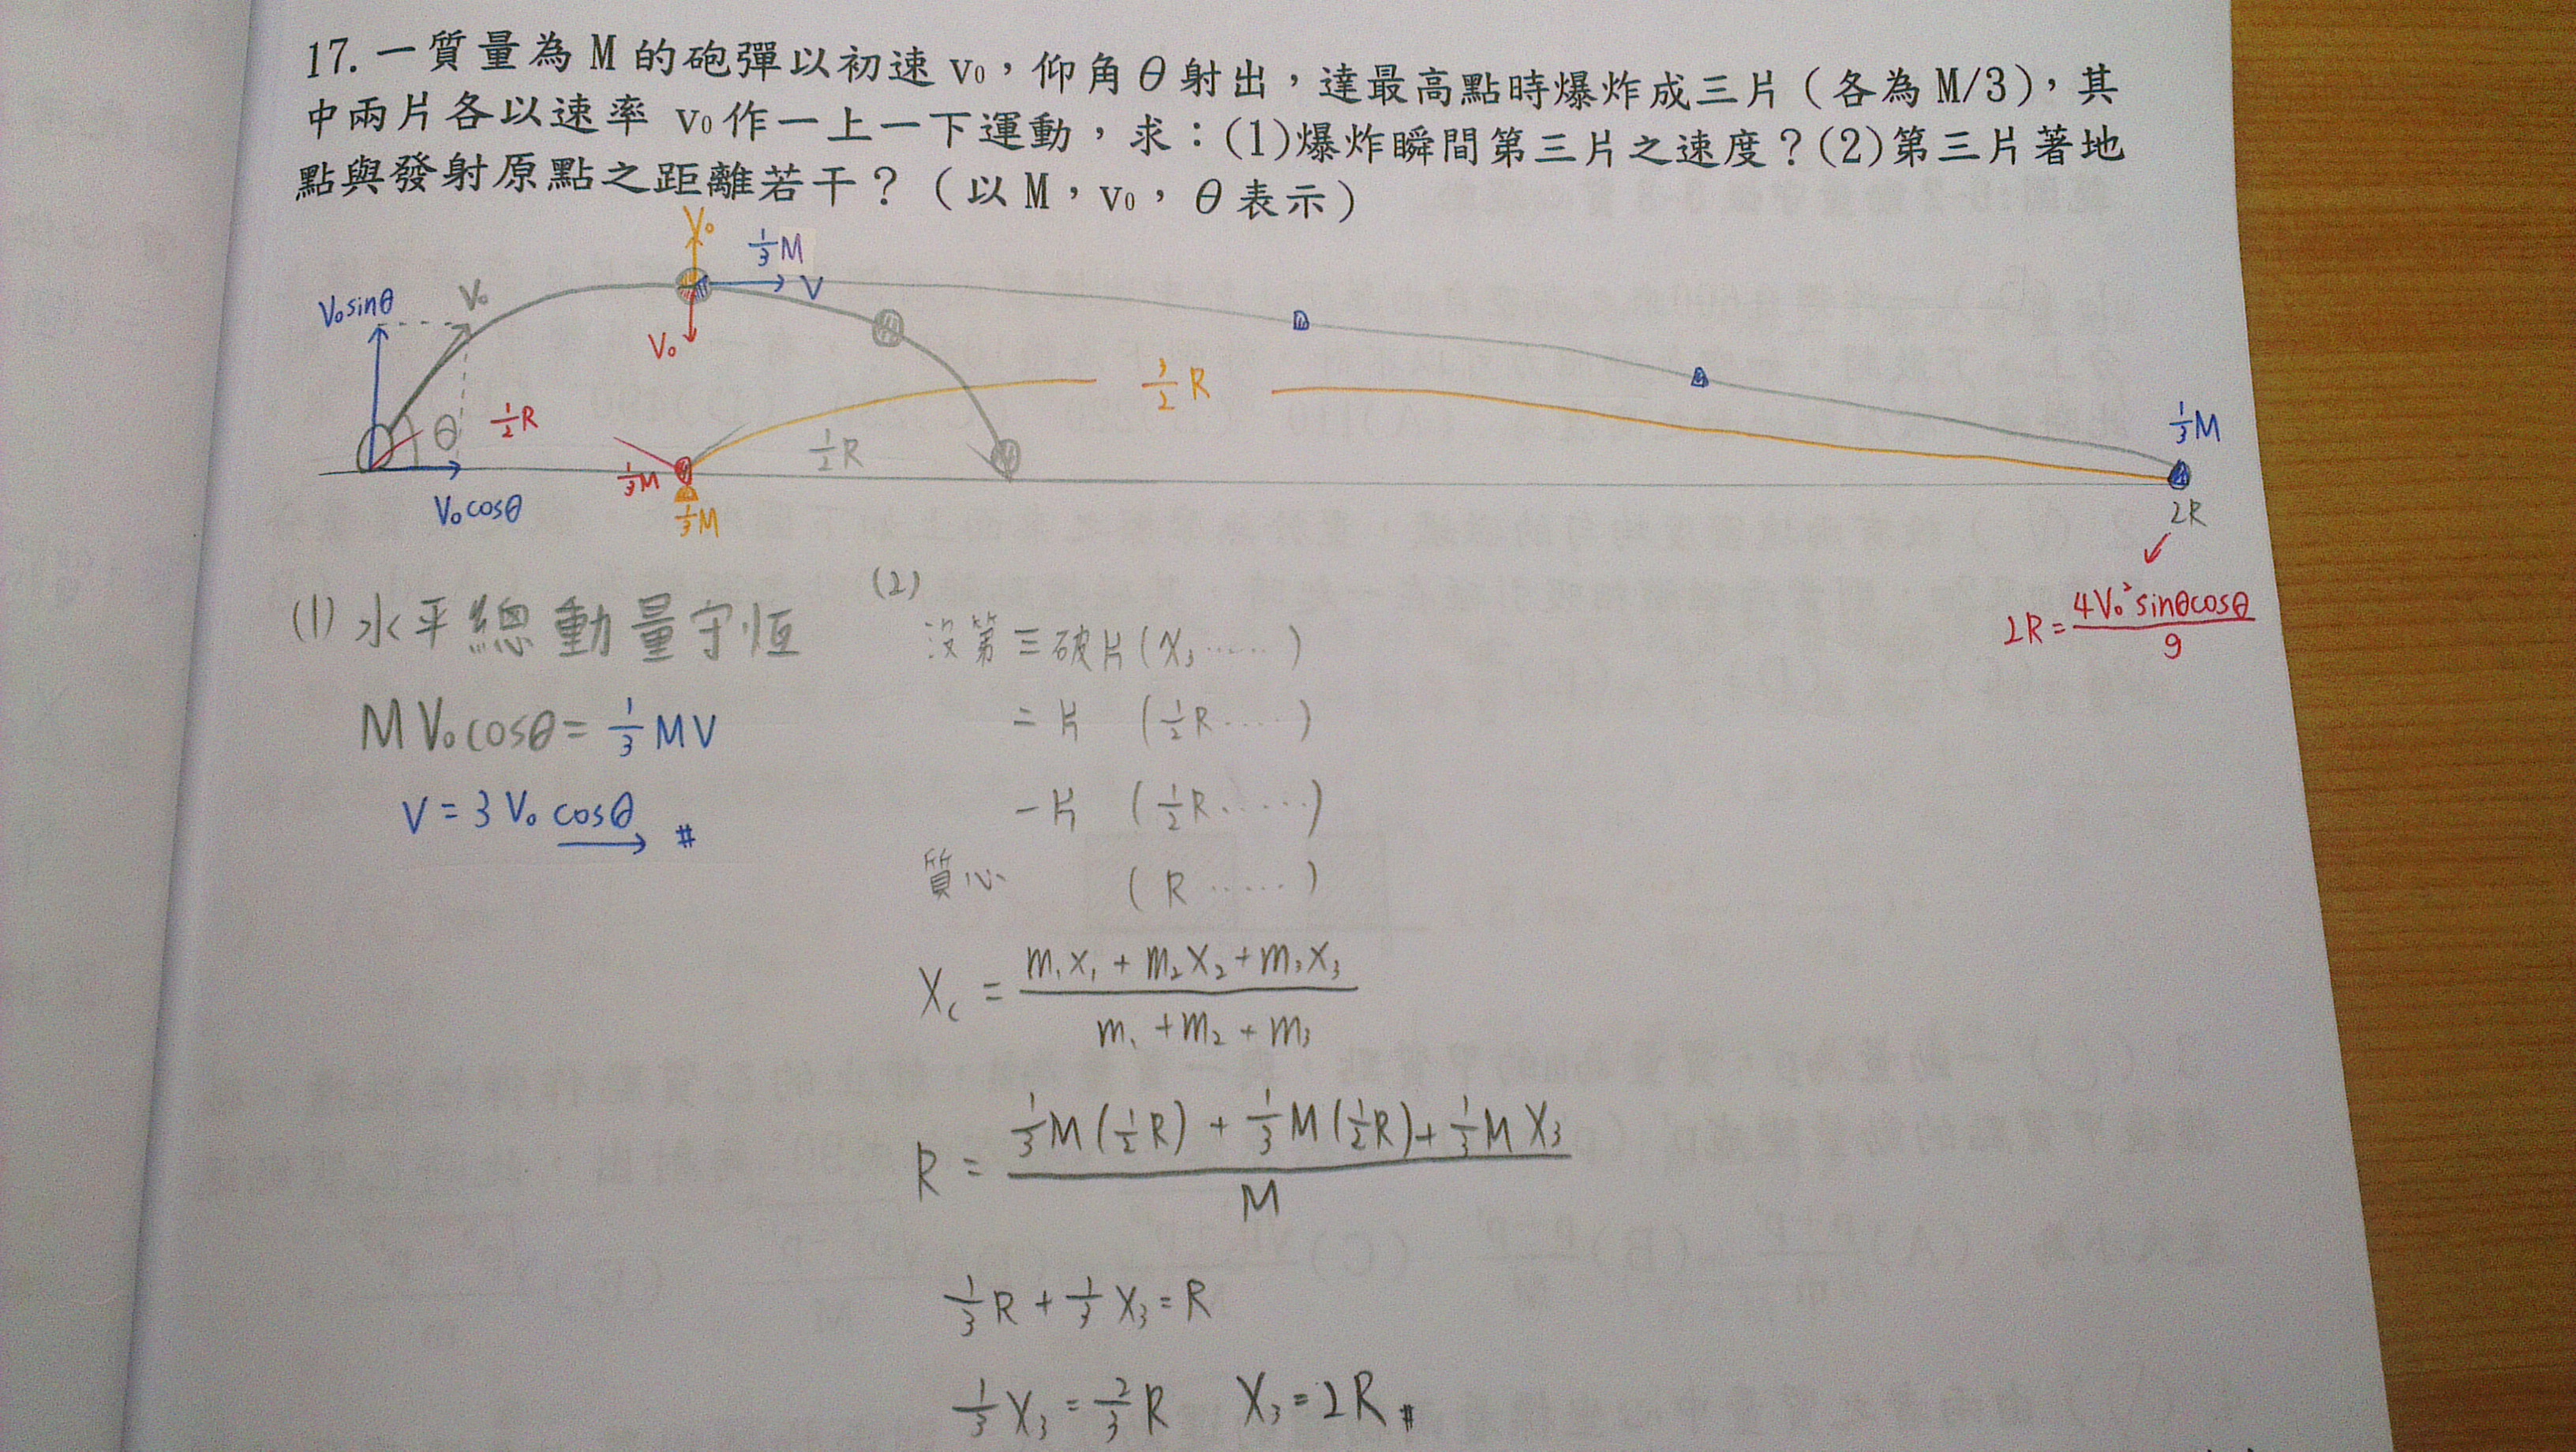 17.一質量為 M 的砲彈以初速 v₀,仰角 θ 射出,達最高點時爆炸成三片(各為 M/3),其
中兩片各以速率 v₀ 作一上一下運動,求:(1)爆炸瞬間第三片之速度?(2)第三片著地
點與發射原點之距離若干?(以 M,v₀,θ 表示)
V₀
1/3 M
V
V₀sinθ
V₀
V₀
3/2 R
1/2 R
θ
1/2 R
1/3 M
1/3 M
1/3 M
V₀cosθ
2R
2R = 4V₀²sinθcosθ / g
(1) 水平總動量守恆
MV₀cosθ = 1/3 MV
V = 3V₀cosθ #
(2)
沒第三破片(X₃……)
二片 (1/2 R……)
一片 (1/2 R……)
質心 (R……)
X_c = (m₁x₁ + m₂x₂ + m₃x₃) / (m₁ + m₂ + m₃)
R = (1/3 M(1/2 R) + 1/3 M(1/2 R) + 1/3 M X₃) / M
1/3 R + 1/3 X₃ = R
1/3 X₃ = 2/3 R X₃ = 2R #